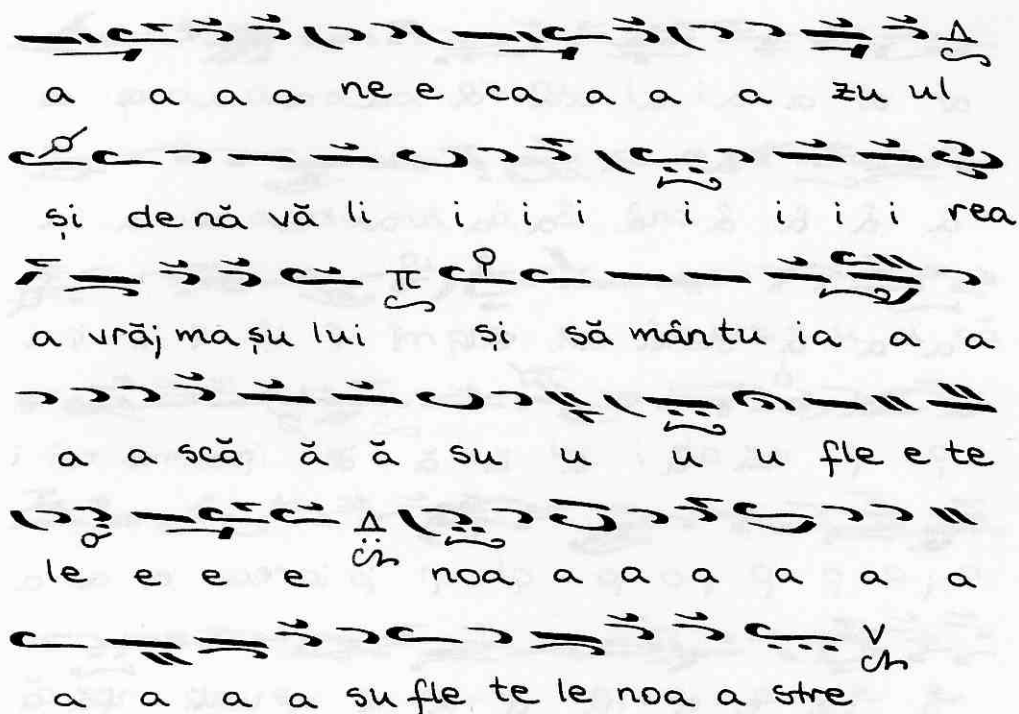 a a a a ne e ca a a a zu ul
Δ
și de nă vă li i i i i i i i rea
a vrăj ma șu lui și să mân tu ia a a
π
a a scă ă ă su u u u fle e te
le e e e noa a a a a a a
Δ
a a a a su fle te le noa a stre
ν